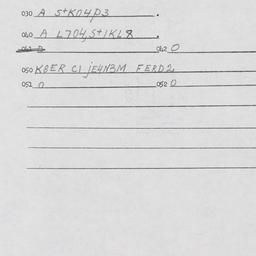 030 A StKN4P3 .
040 A L704,St1KL8 .
041 0 042 0
050 KBER C1 jE4N3M FERD2
051 0 052 0